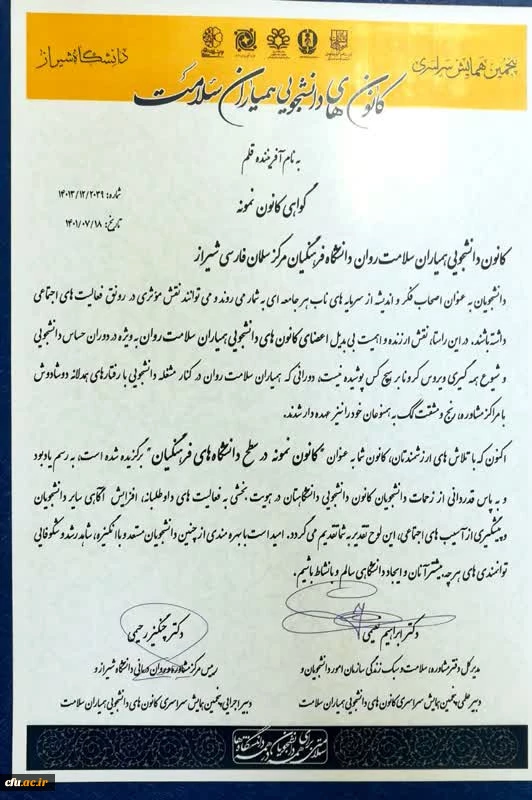 پنجمین همایش سراسری
دانشگاه شیراز
کانون های دانشجویی همیاران سلامت
به نام آفریننده قلم
گواهی کانون نمونه
شماره: ۱۴۰۱۳/۱۲/۲۰۳۹
تاریخ: ۱۴۰۱/۰۷/۱۸
کانون دانشجویی همیاران سلامت روان دانشگاه فرهنگیان مرکز سلمان فارسی شیراز
دانشجویان به عنوان اصحاب فکر و اندیشه از سرمایه های ناب هر جامعه ای به شمار می روند و می توانند نقش مؤثری در رونق فعالیت های اجتماعی
داشته باشند. در این راستا، نقش ارزنده و اهمیت بی بدیل اعضای کانون های دانشجویی همیاران سلامت روان به ویژه در دوران حساس دانشجویی
و شیوع همه گیری ویروس کرونا بر هیچ کس پوشیده نیست، دورانی که همیاران سلامت روان در کنار مشغله دانشجویی با رفتارهای همدلانه دوشادوش
با مراکز مشاوره، رنج و مشقت کمک به همنوعان خود را نیز عهده دار شدند.
اکنون که با تلاش های ارزشمندتان، کانون شما به عنوان "کانون نمونه در سطح دانشگاه های فرهنگیان" برگزیده شده است، به رسم یادبود
و به پاس قدردانی از زحمات دانشجویان کانون دانشجویی دانشگاهتان در هویت بخشی به فعالیت های داوطلبانه، افزایش آگاهی سایر دانشجویان
و پیشگیری از آسیب های اجتماعی، این لوح تقدیر به شما تقدیم می گردد. امید است با بهره مندی از چنین دانشجویان مستعد و با انگیزه، شاهد رشد و شکوفایی
توانمندی های هر چه بیشتر آنان و ایجاد دانشگاهی سالم و با نشاط باشیم.
دکتر ابراهیم نعیمی
مدیر کل دفتر مشاوره، سلامت و سبک زندگی سازمان امور دانشجویان و
دبیر علمی پنجمین همایش سراسری کانون های دانشجویی همیاران سلامت
دکتر چنگیز رحیمی
رییس مرکز مشاوره و روان درمانی دانشگاه شیراز و
دبیر اجرایی پنجمین همایش سراسری کانون های دانشجویی همیاران سلامت
cfu.ac.ir